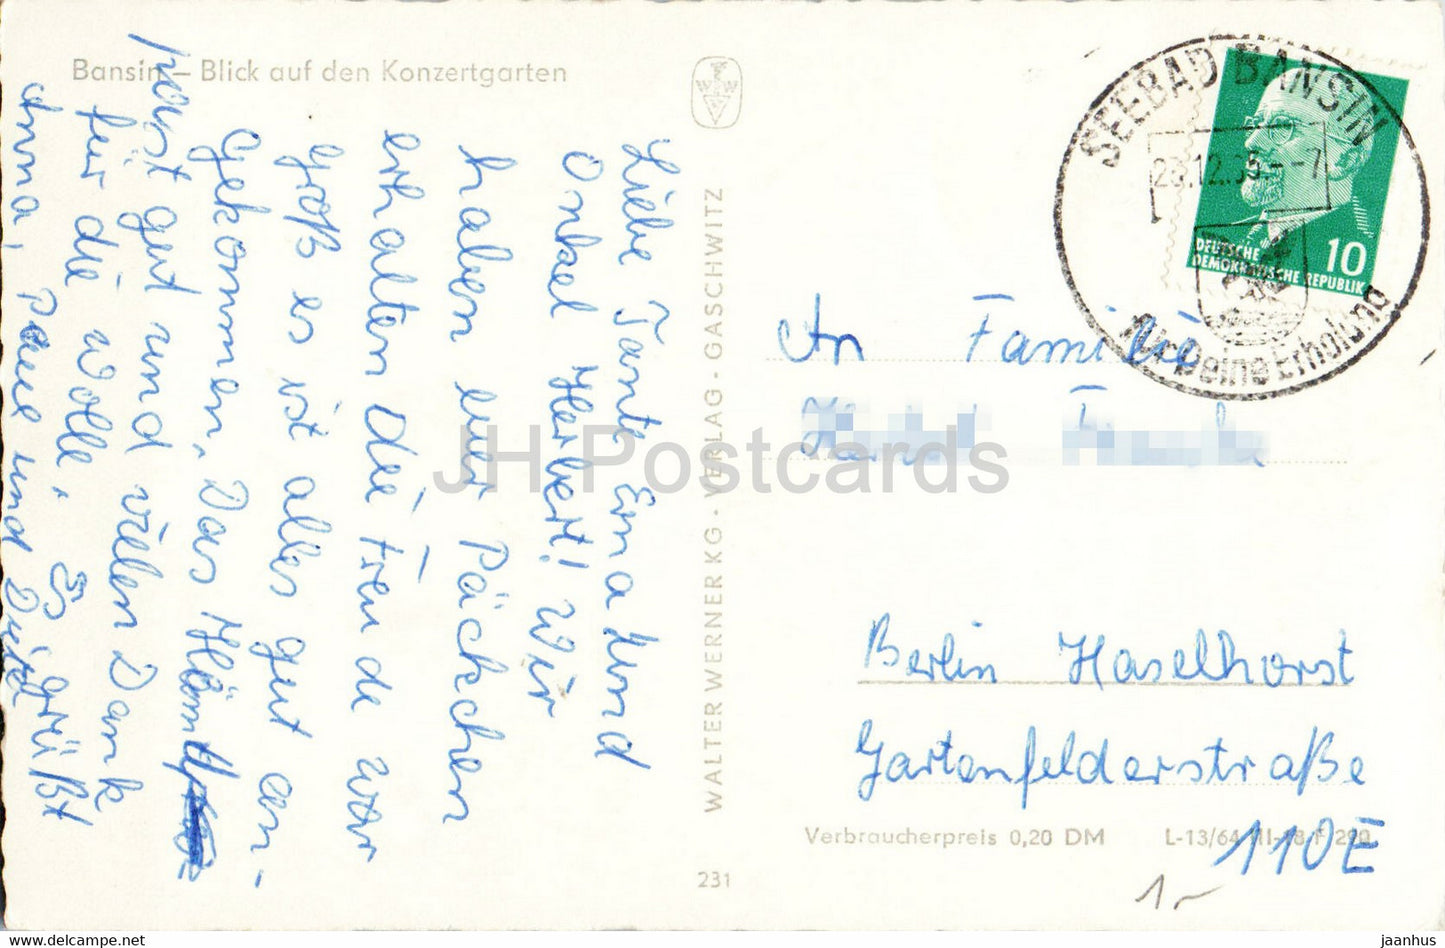 Bansin – Blick auf den Konzertgarten
Liebe Tante Erna und
Onkel Herbert! Wir
haben euer Päckchen
erhalten Die Freude war
groß es ist alles gut an-
gekommen, Das
passt gut und vielen Dank
für die Wolle. Es grüßt
Anna, Paul und
WALTER WERNER KG · VERLAG · GASCHWITZ
231
SEEBAD BANSIN
12.65 - -7
für Deine Erholung
DEUTSCHE
DEMOKRATISCHE REPUBLIK
10
An Familie
Berlin Haselhorst
Gartenfelderstraße
110E
Verbraucherpreis 0,20 DM
L-13/64
1,-
JH Postcards
hippostcard.com
jaanhus